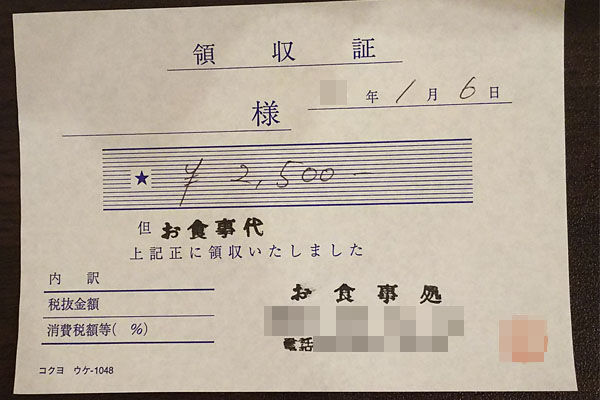 領収証
年 1月 6日
様
★ ¥2,500-
但 お食事代
上記正に領収いたしました
内訳
税抜金額
消費税額等( %)
お食事処
電話
コクヨ ウケ-1048